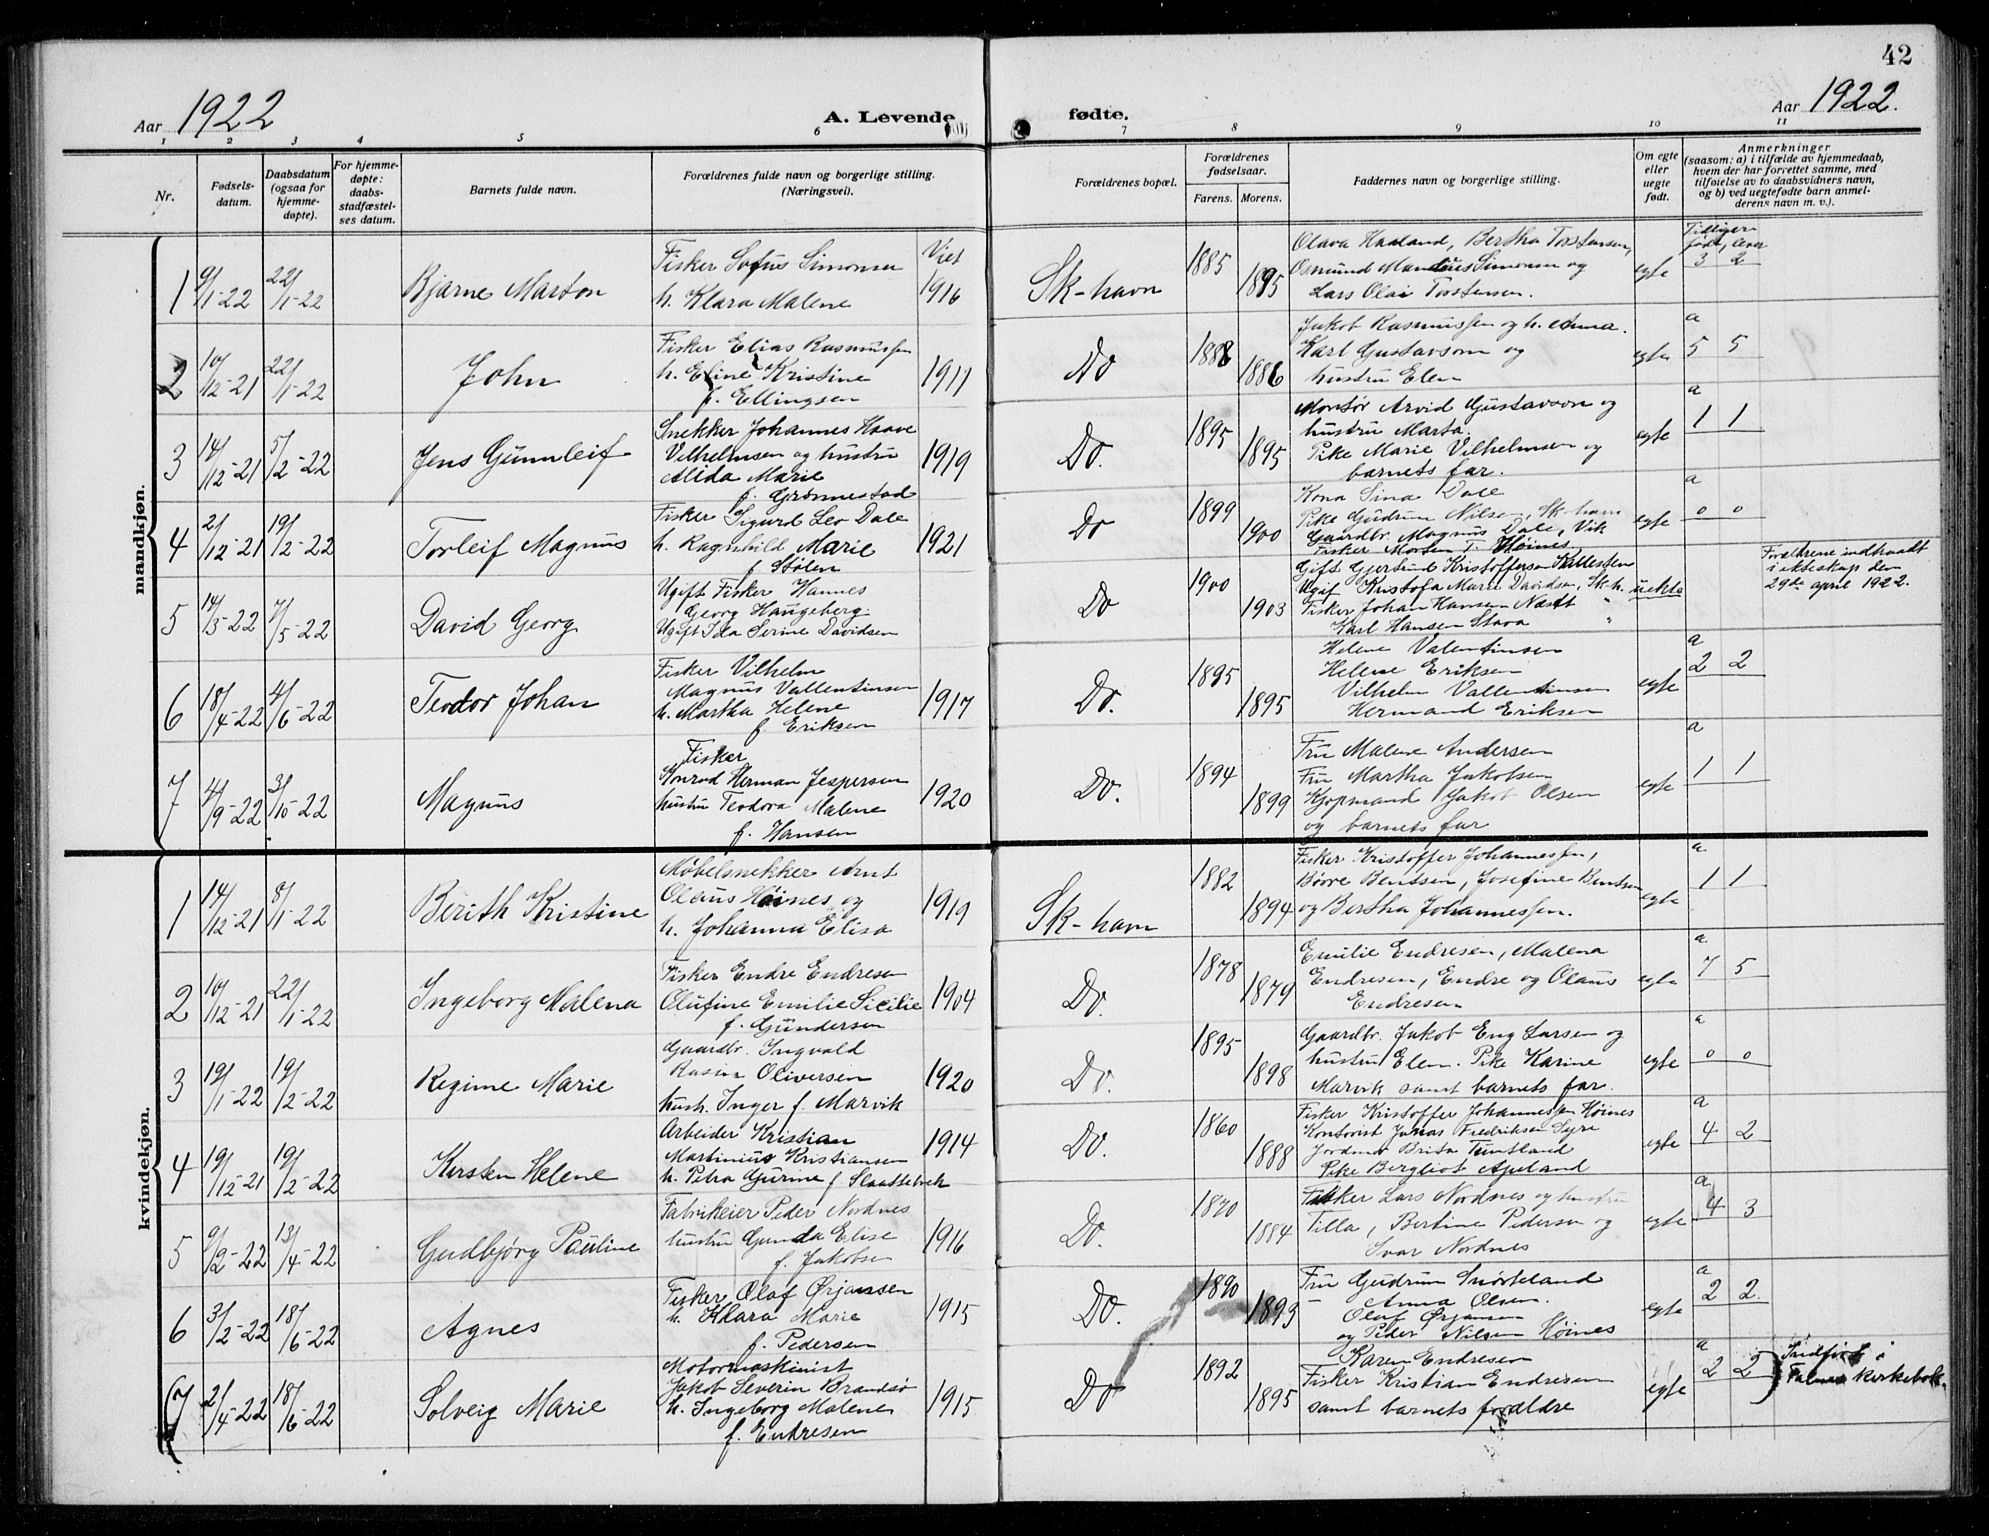 42
Aar 1922
A. Levende fødte.
Aar 1922.
1 2 3 4 5 6 7 8 9 10 11
Nr.
Fødsels-
datum.
Daabsdatum
(ogsaa for
hjemme-
døpte).
For hjemme-
døpte:
daabs-
stadfæstel-
ses datum.
Barnets fulde navn.
Forældrenes fulde navn og borgerlige stilling.
(Næringsvei).
Forældrenes bopæl.
Forældrenes
fødselsaar.
Farens. Morens.
Faddernes navn og borgerlige stilling.
Om egte
eller
uegte
født.
Anmerkninger
(saasom: a) i tilfælde av hjemmedaab,
hvem der har forrettet samme, med
tilføielse av to daabsvidners navn,
og b) ved uegtefødte barn anmel-
derens navn m. v.).
mandkjøn.
1 9/1-22 22/1-22 Bjarne Marton
Fisker Sofus Simonsen
h. Klara Malene
Viet
1916
Sk-havn
1885 1895
Olava Haaland, Bertha Torstensen,
Osmund Mandius Simonsen og
Lars Olai Torstensen.
egte
Tidligere
født, lever
3 2
2 10/12-21 22/1-22 John
Fisker Elias Rasmussen
h. Eline Kristine
f. Ellingsen
1911
Do
1888 1886
Jakob Rasmussen og h. Anna.
Karl Gustavson og
hustru Elen
egte
a
5 5
3 14/12-21 5/2-22 Jens Gunnleif
Snekker Johannes Haave
Vilhelmsen og hustru
Alida Marie
f. Grønnestad
1919
Do.
1895 1895
Montør Arvid Gustavson og
hustru Marta.
Pike Marie Vilhelmsen og
barnets far.
egte
a
1 1
4 2/12-21 19/2-22 Torleif Magnus
Fisker Sigurd Leo Dale
h. Ragnhild Marie
f Stølen
1921
Do
1899 1900
Kona Sina Dale
Pike Gudrun Nilsen, Sk-havn
Gaardbr. Magnus Dale, Vik
Fisker Morten T. Høines
egte
a
0 0
5 14/3-22 7/5-22 David Georg
Ugift Fisker Hannes
Georg Haugeberg.
Ugift Ida Serine Davidsen
Do
1900 1903
Gift Gjertrud Kristoffersen Kallesten
Ugif Kristofa Marie Davidsen, Sk-h.
Fisker Johan Hansen Næst "
Karl Hansen Stava "
uekte
Forældrene indtraadt
i ekteskap den
29de april 1922.
6 18/4-22 4/6-22 Teodor Johan
Fisker Vilhelm
Magnus Vallentinsen
h. Martha Helene
f Eriksen
1917
Do.
1895 1895
Helene Valentinsen
Helene Eriksen
Vilhelm Vallentinsen
Hermand Eriksen
egte
a
2 2
7 4/9-22 3/10-22 Magnus
Fisker
Konrad Herman Jespersen
hustru Teodora Malene
f. Hansen
1920
Do.
1894 1899
Fru Malene Andersen
Fru Martha Jakobsen
Kjøpmand Jakob Olsen
og barnets far
egte
a
1 1
kvindekjøn.
1 14/12-21 8/1-22 Berith Kristine
Møbelsnekker Arnt
Olaus Høines og
h. Johanna Elisa
1919
Sk-havn
1882 1894
Fisker Kristoffer Johannessen,
Børre Bentsen, Josefine Bentsen
og Bertha Johannessen.
egte
a
1 1
2 10/12-21 22/1-22 Ingeborg Malena
Fisker Endre Endresen
Olufine Emilie Sicilie
f. Gundersen
1904
Do.
1878 1879
Emilie Endresen, Malena
Endresen, Endre og Olaus
Endresen
egte
a
7 5
3 19/1-22 19/2-22 Regine Marie
Gaardbr. Ingvald
Rasm Oliversen
hustr. Inger f. Marvik
1920
Do.
1895 1898
Gaardbr. Jakob Eng Larsen og
hustru Elen. Pike Karine
Marvik samt barnets far.
egte
a
0 0
4 19/12-21 19/2-22 Kirsten Helene
Arbeider Kristian
Martinius Kristiansen
h. Petra Gurine f Slaattebrek
1914
Do.
1860 1888
Fisker Kristoffer Johannessen Høines
Kontorist Jonas Fredriksen Syre
Jordmor Brita Tuntland
Pike Bergliot Apeland
egte
a
4 2
5 9/2-22 13/4-22 Gudbjørg Pauline
Fabrikeier Peder Nordnes
hustru Gunda Elise
f. Jakobsen
1916
Do.
1870 1884
Fisker Lars Nordnes og hustru
Tilla, Bertine Pedersen og
Ivar Nordnes
egte
a
4 3
6 3/2-22 18/6-22 Agnes
Fisker Olaf Ørjansen
h. Klara Marie
f. Pedersen
1915
Do.
1890 1893
Fru Gudrun Snørteland
- Anna Olsen.
Olaf Ørjansen
og Peder Nilsen Høines
egte
a
2 2.
7 2/4-22 18/6-22 Solveig Marie
Motormaskinist
Jakob Severin Brandsø
h. Ingeborg Malene
f. Endresen
1915
Do
1892 1895
Karen Endresen
Fisker Kristian Endresen
samt barnets forældre
egte
a
2 2
Indført i
Falnes kirkebok.